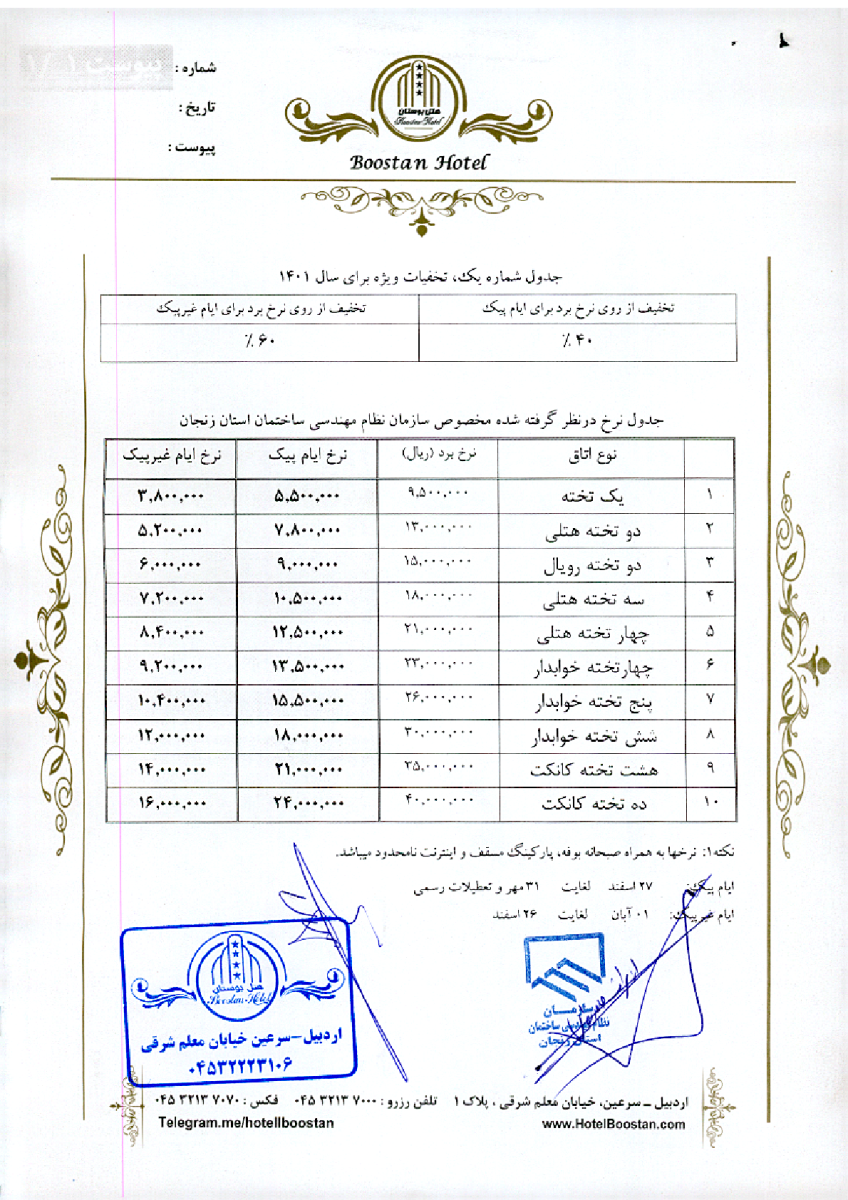 پیوست ۱/۰۱
شماره :
تاریخ :
پیوست :
هتل بوستان
Boostan Hotel
Boostan Hotel
جدول شماره یک، تخفیات ویژه برای سال ۱۴۰۱
تخفیف از روی نرخ برد برای ایام پیک	تخفیف از روی نرخ برد برای ایام غیرپیک
۴۰ ٪	۶۰ ٪
جدول نرخ درنظر گرفته شده مخصوص سازمان نظام مهندسی ساختمان استان زنجان
نوع اتاق	نرخ برد (ریال)	نرخ ایام پیک	نرخ ایام غیرپیک
۱	یک تخته	۹,۵۰۰,۰۰۰	۵,۵۰۰,۰۰۰	۳,۸۰۰,۰۰۰
۲	دو تخته هتلی	۱۳,۰۰۰,۰۰۰	۷,۸۰۰,۰۰۰	۵,۲۰۰,۰۰۰
۳	دو تخته رویال	۱۵,۰۰۰,۰۰۰	۹,۰۰۰,۰۰۰	۶,۰۰۰,۰۰۰
۴	سه تخته هتلی	۱۸,۰۰۰,۰۰۰	۱۰,۵۰۰,۰۰۰	۷,۲۰۰,۰۰۰
۵	چهار تخته هتلی	۲۱,۰۰۰,۰۰۰	۱۲,۵۰۰,۰۰۰	۸,۴۰۰,۰۰۰
۶	چهارتخته خوابدار	۲۳,۰۰۰,۰۰۰	۱۳,۵۰۰,۰۰۰	۹,۲۰۰,۰۰۰
۷	پنج تخته خوابدار	۲۶,۰۰۰,۰۰۰	۱۵,۵۰۰,۰۰۰	۱۰,۴۰۰,۰۰۰
۸	شش تخته خوابدار	۳۰,۰۰۰,۰۰۰	۱۸,۰۰۰,۰۰۰	۱۲,۰۰۰,۰۰۰
۹	هشت تخته کانکت	۳۵,۰۰۰,۰۰۰	۲۱,۰۰۰,۰۰۰	۱۴,۰۰۰,۰۰۰
۱۰	ده تخته کانکت	۴۰,۰۰۰,۰۰۰	۲۴,۰۰۰,۰۰۰	۱۶,۰۰۰,۰۰۰
نکته۱: نرخها به همراه صبحانه بوفه، پارکینگ مسقف و اینترنت نامحدود میباشد.
ایام پیک: ۲۷ اسفند لغایت ۳۱ مهر و تعطیلات رسمی
ایام غیرپیک: ۰۱ آبان لغایت ۲۶ اسفند
سازمان
نظام مهندسی ساختمان
استان زنجان
هتل بوستان
Boostan Hotel
اردبیل-سرعین خیابان معلم شرقی
۰۴۵۳۲۲۲۳۱۰۶
اردبیل – سرعین، خیابان معلم شرقی ، پلاک ۱ تلفن رزرو : ۷۰۰۰ ۳۲۱۳ ۰۴۵ فکس : ۷۰۷۰ ۳۲۱۳ ۰۴۵
www.HotelBoostan.com
Telegram.me/hotellboostan